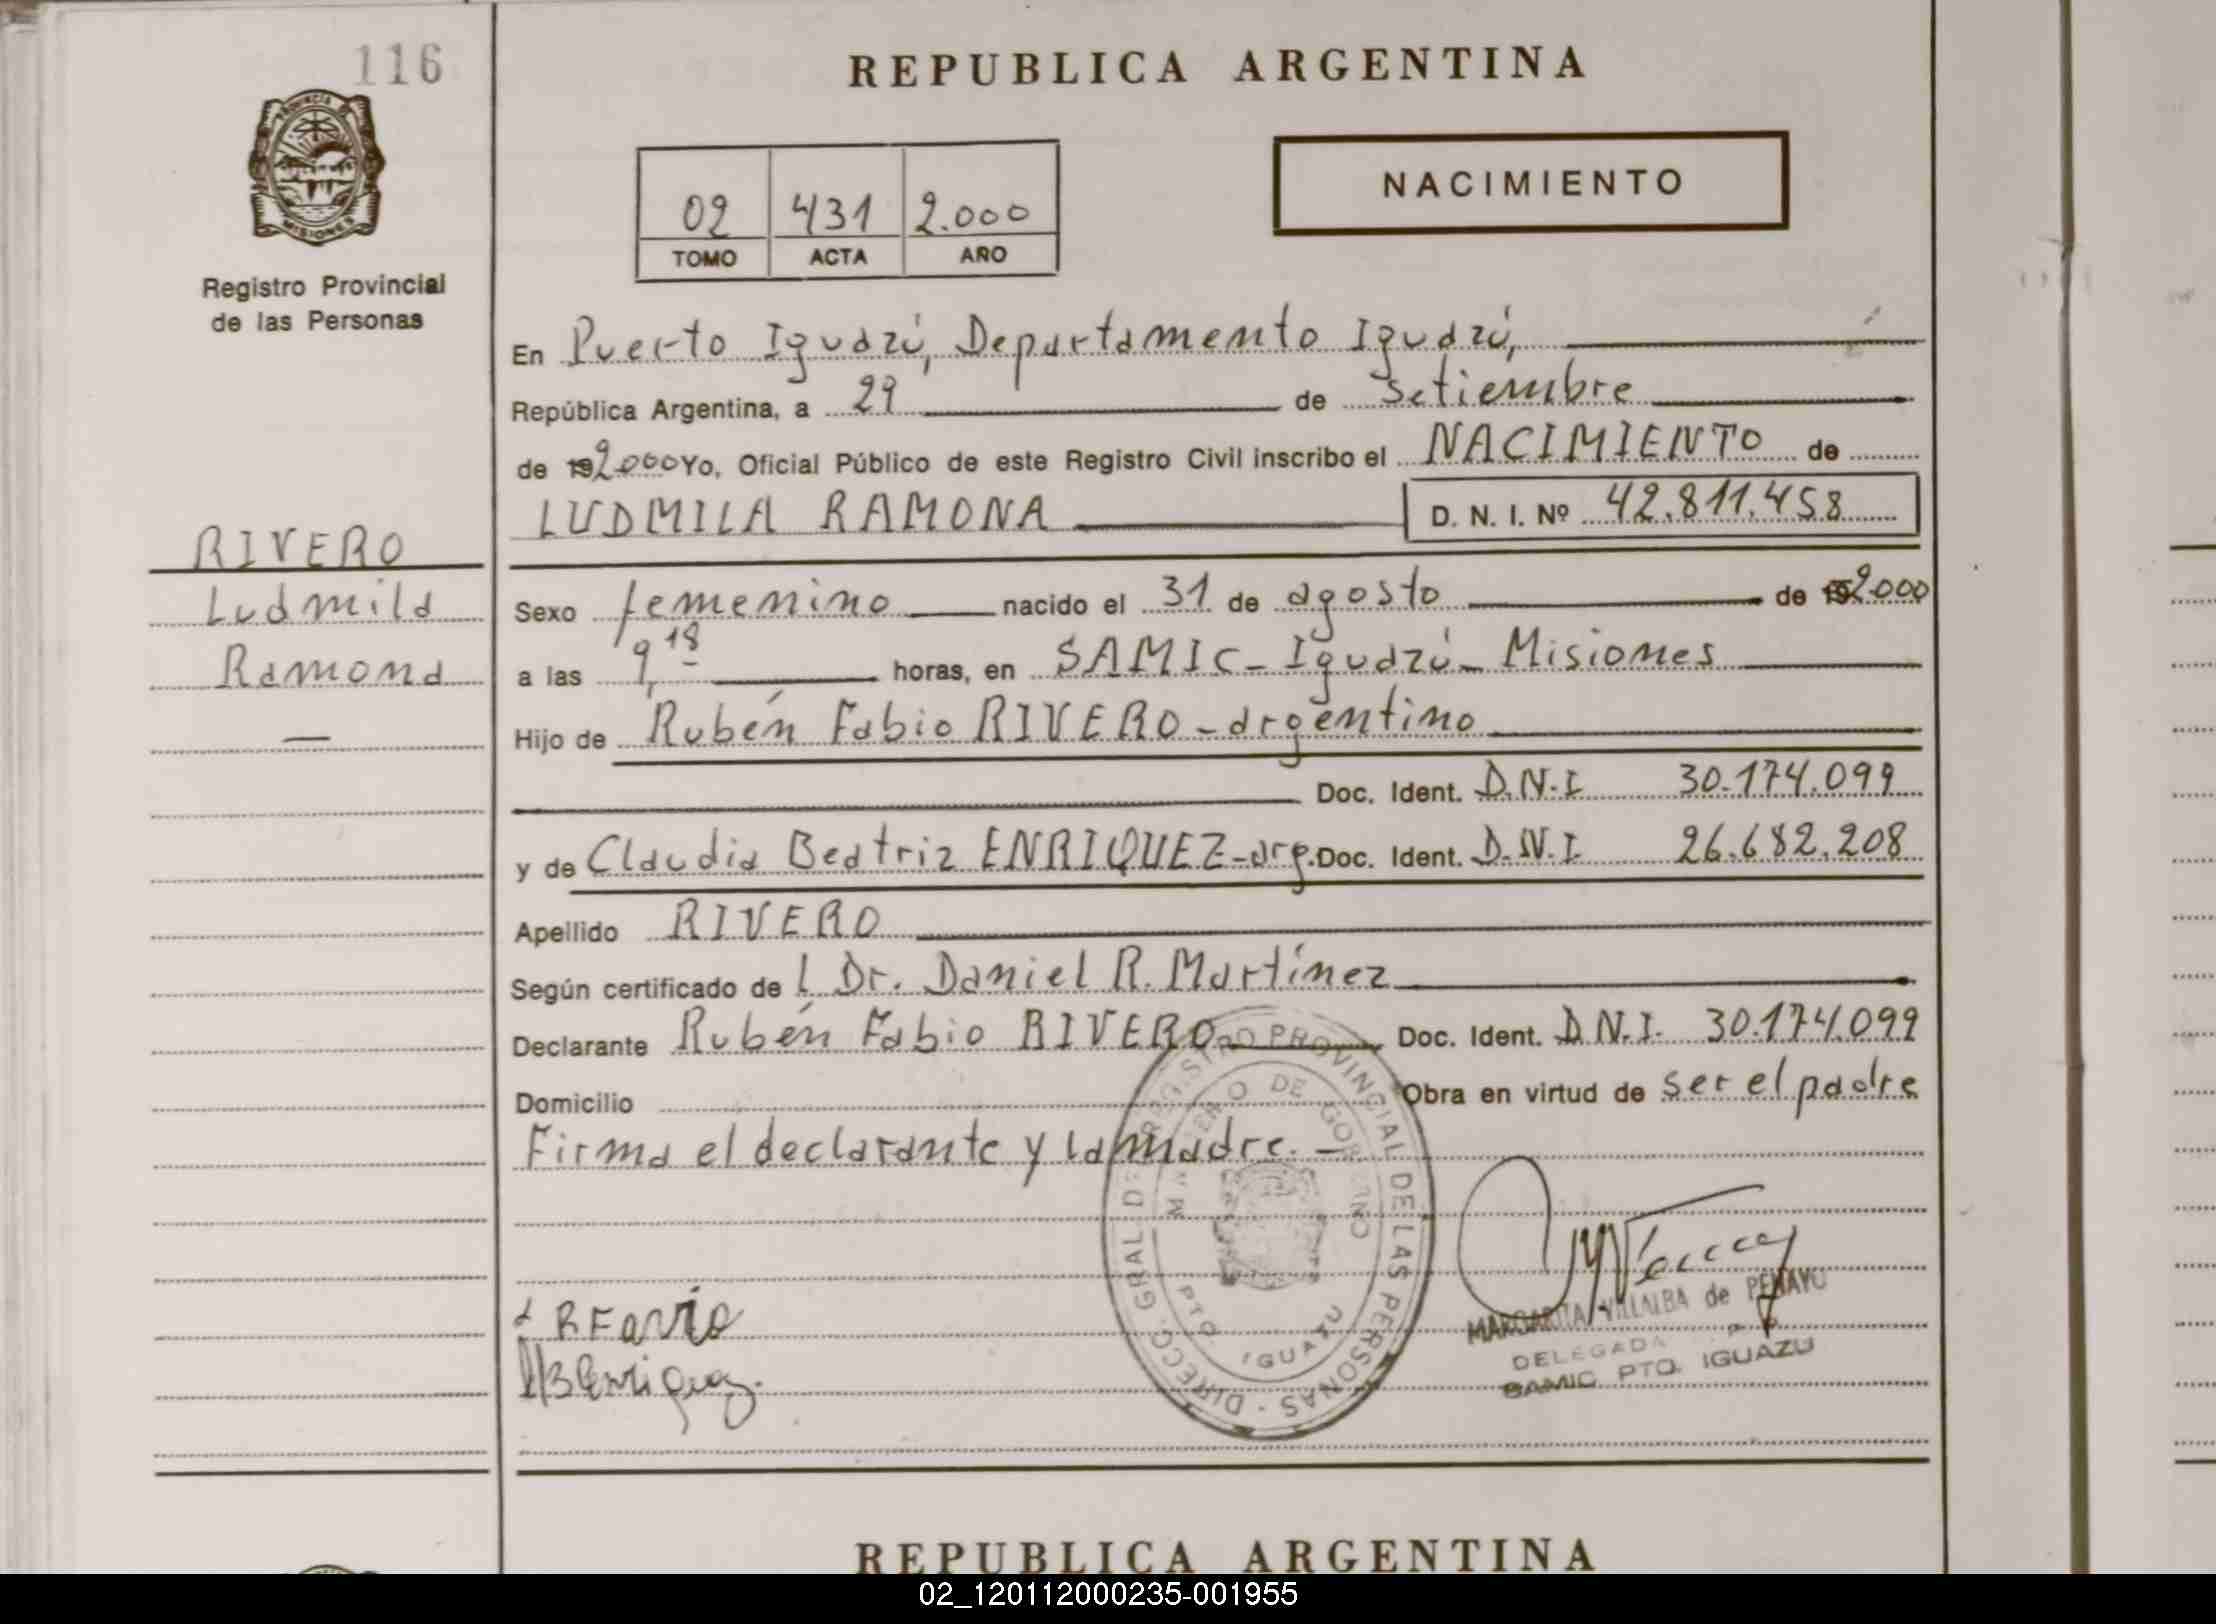 116
REPUBLICA ARGENTINA
PROVINCIA
MISIONES
Registro Provincial
de las Personas
02 431 2.000
TOMO ACTA AÑO
NACIMIENTO
En Puerto Iguazú, Departamento Iguazú,
República Argentina, a 29 de setiembre
de 192000 Yo, Oficial Público de este Registro Civil inscribo el NACIMIENTO de
LUDMILA RAMONA D. N. I. Nº 42.811.458
RIVERO
Ludmila
Ramona
—
Sexo femenino nacido el 31 de agosto de 192000
a las 9,18 horas, en SAMIC - Iguazú - Misiones
Hijo de Rubén Fabio RIVERO - argentino
Doc. Ident. D.N.I 30.174.099
y de Claudia Beatriz ENRIQUEZ - arg. Doc. Ident. D.N.I 26.682.208
Apellido RIVERO
Según certificado de l Dr. Daniel R. Martínez
Declarante Rubén Fabio RIVERO Doc. Ident. D.N.I. 30.174.099
Domicilio Obra en virtud de ser el padre
Firma el declarante y la madre. -
DIRECC. GRAL. DE REGISTRO PROVINCIAL DE LAS PERSONAS
MINISTERIO DE GOBIERNO
PTO. IGUAZU
MARGARITA VILLALBA de PENAYO
DELEGADA
SAMIC PTO. IGUAZU
REPUBLICA ARGENTINA
02_120112000235-001955